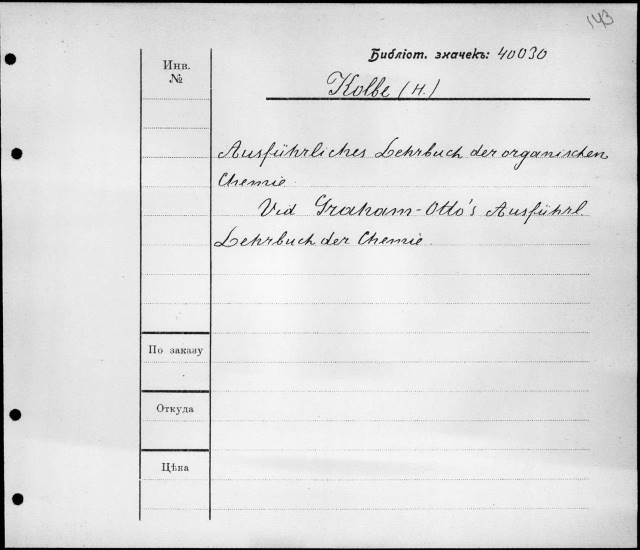 143
Библіот. значекъ: 40030
Инв.
№
Kolbe (H.)
Ausführliches Lehrbuch der organischen
Chemie.
Vid Graham-Otto's Ausführl.
Lehrbuch der Chemie.
По заказу
Откуда
Цѣна